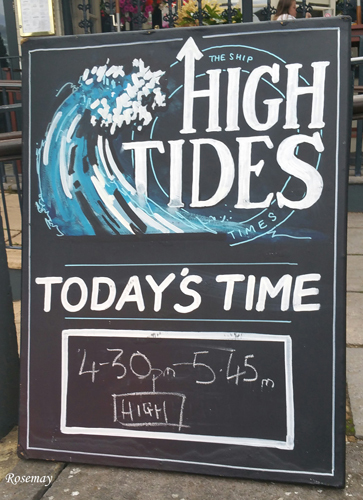 THE SHIP
HIGH
TIDES
TIMES
TODAY'S TIME
4-30pm-5.45m
HIGH
Rosemay